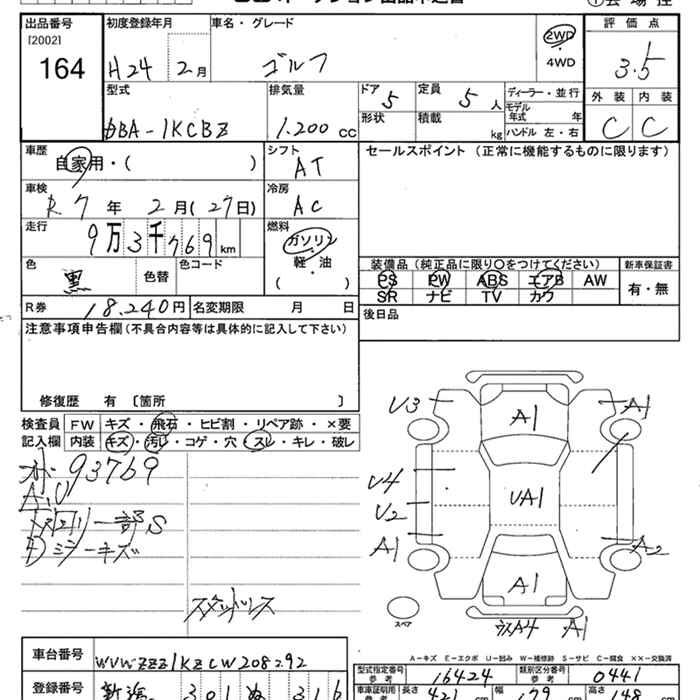 出品番号 初度登録年月 車名・グレード 2WD 評価点
[2002]
164 H24 2月 ゴルフ 4WD 3.5
型式 排気量 ドア 5 定員 5人 ディーラー・並行 外装 内装
DBA-1KCBZ 1.200cc 形状 積載 kg モデル年式 年 C C
ハンドル 左・右
車歴 自家用・( ) シフト AT セールスポイント (正常に機能するものに限ります)
車検 R7年 2月(27日) 冷房 AC
走行 9万3千769km 燃料 ガソリン
軽・油
( )
色 黒 色替 色コード 装備品 (純正品に限り○をつけてください) 新車保証書
PS PW ABS エアB AW 有・無
SR ナビ TV カワ
R券 18.240円 名変期限 月 日 後日品
注意事項申告欄 (不具合内容等は具体的に記入して下さい)
修復歴 有 〔箇所 〕
検査員 FW キズ・飛石・ヒビ割・リペア跡・×要
記入欄 内装 キズ・汚レ・コゲ・穴・スレ・キレ・破レ
93769
A.U
一部S
スタッドレス
U3 A1 A1
U4 UA1
U2
A1 A2
A1
スペア A4 A1
A-キズ E-エクボ U-凹み W-補修跡 S-サビ C-腐食 ××-交換済
車台番号 WVWZZZ1KZCW208292
型式指定番号 参考 16424 類別区分番号 参考 0441
登録番号 新潟 301 ぬ 316
車車証明用 参考 長さ 421 cm 幅 179 cm 高さ 148 cm